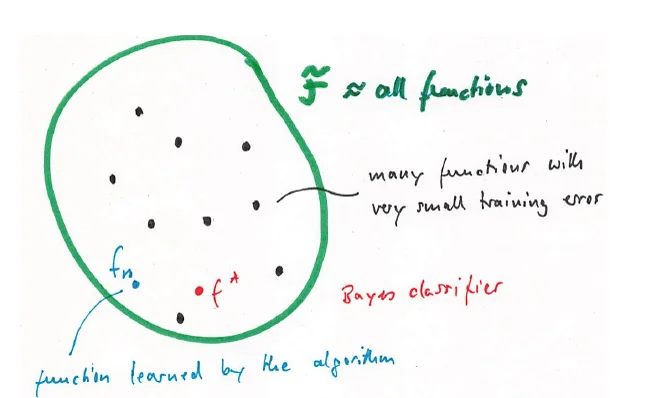 F̃ ≈ all functions
many functions with
very small training error
fn
f*
Bayes classifier
function learned by the algorithm